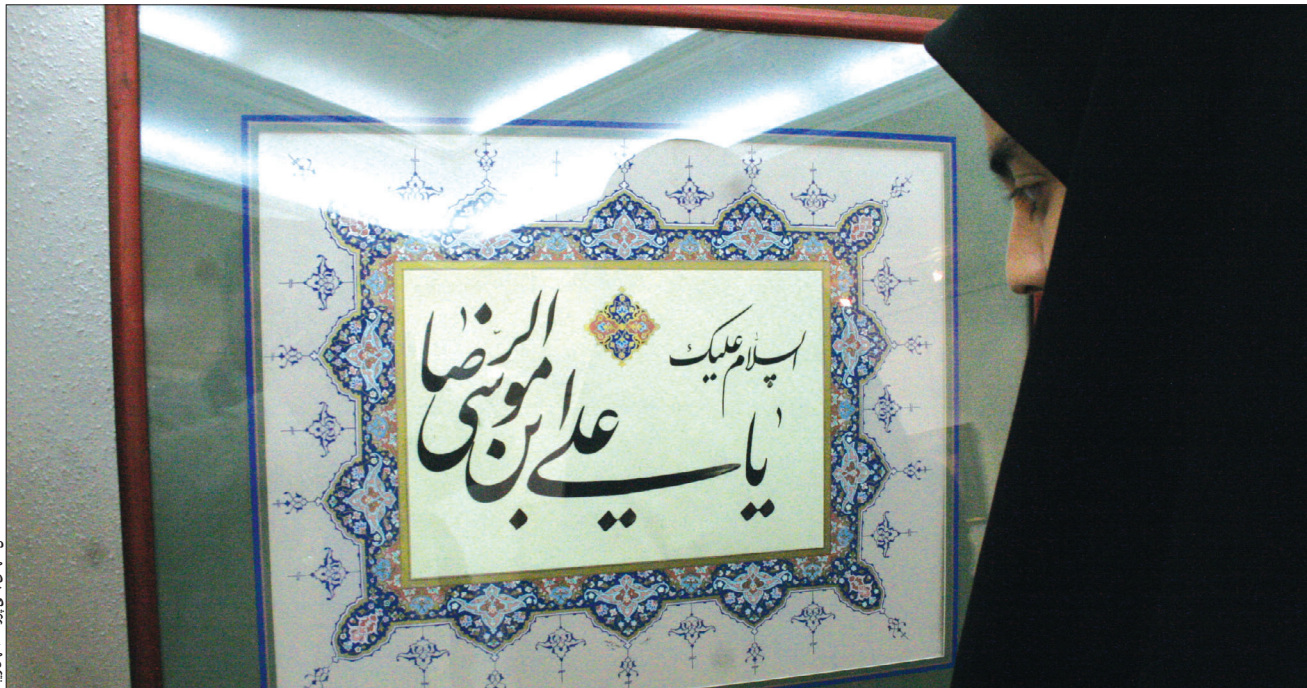 السلام علیک
یا علی ابن موسی الرضا